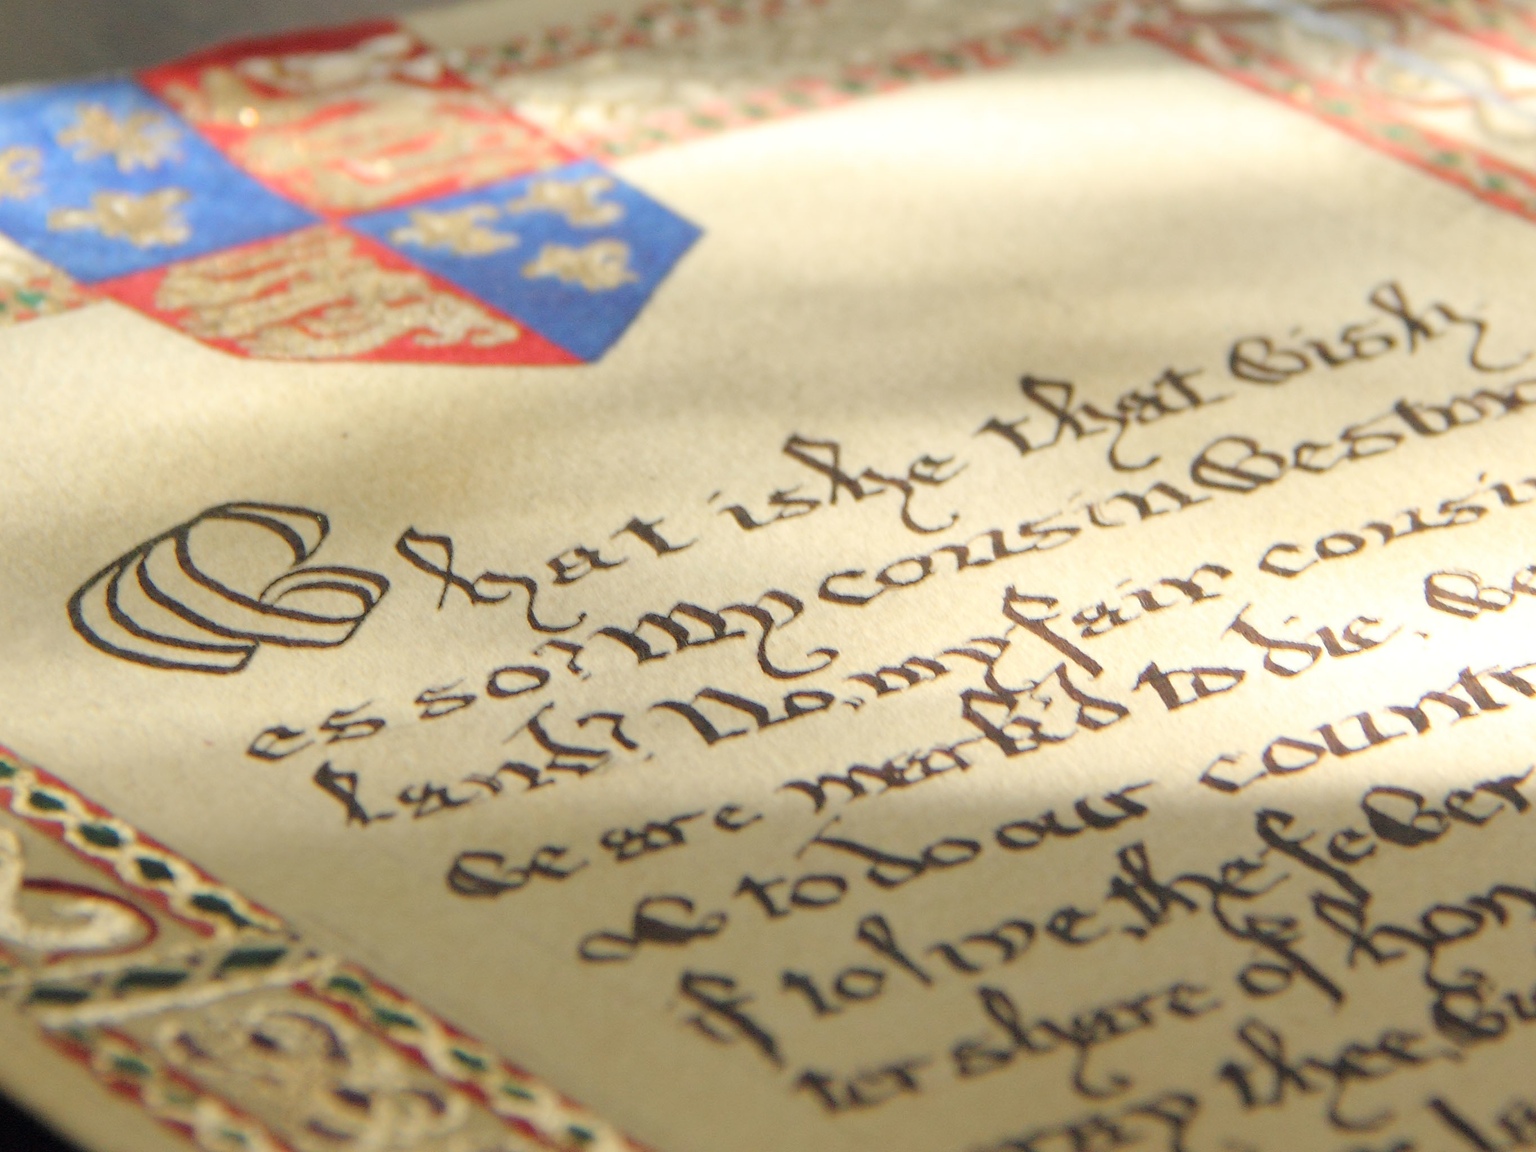 What is he that wish
es so? My cousin Westmor
land? No, my fair cousin
we are mark'd to die, we
ow to do our countr
if to live, the fewer
ter share of hon
pray thee, wi